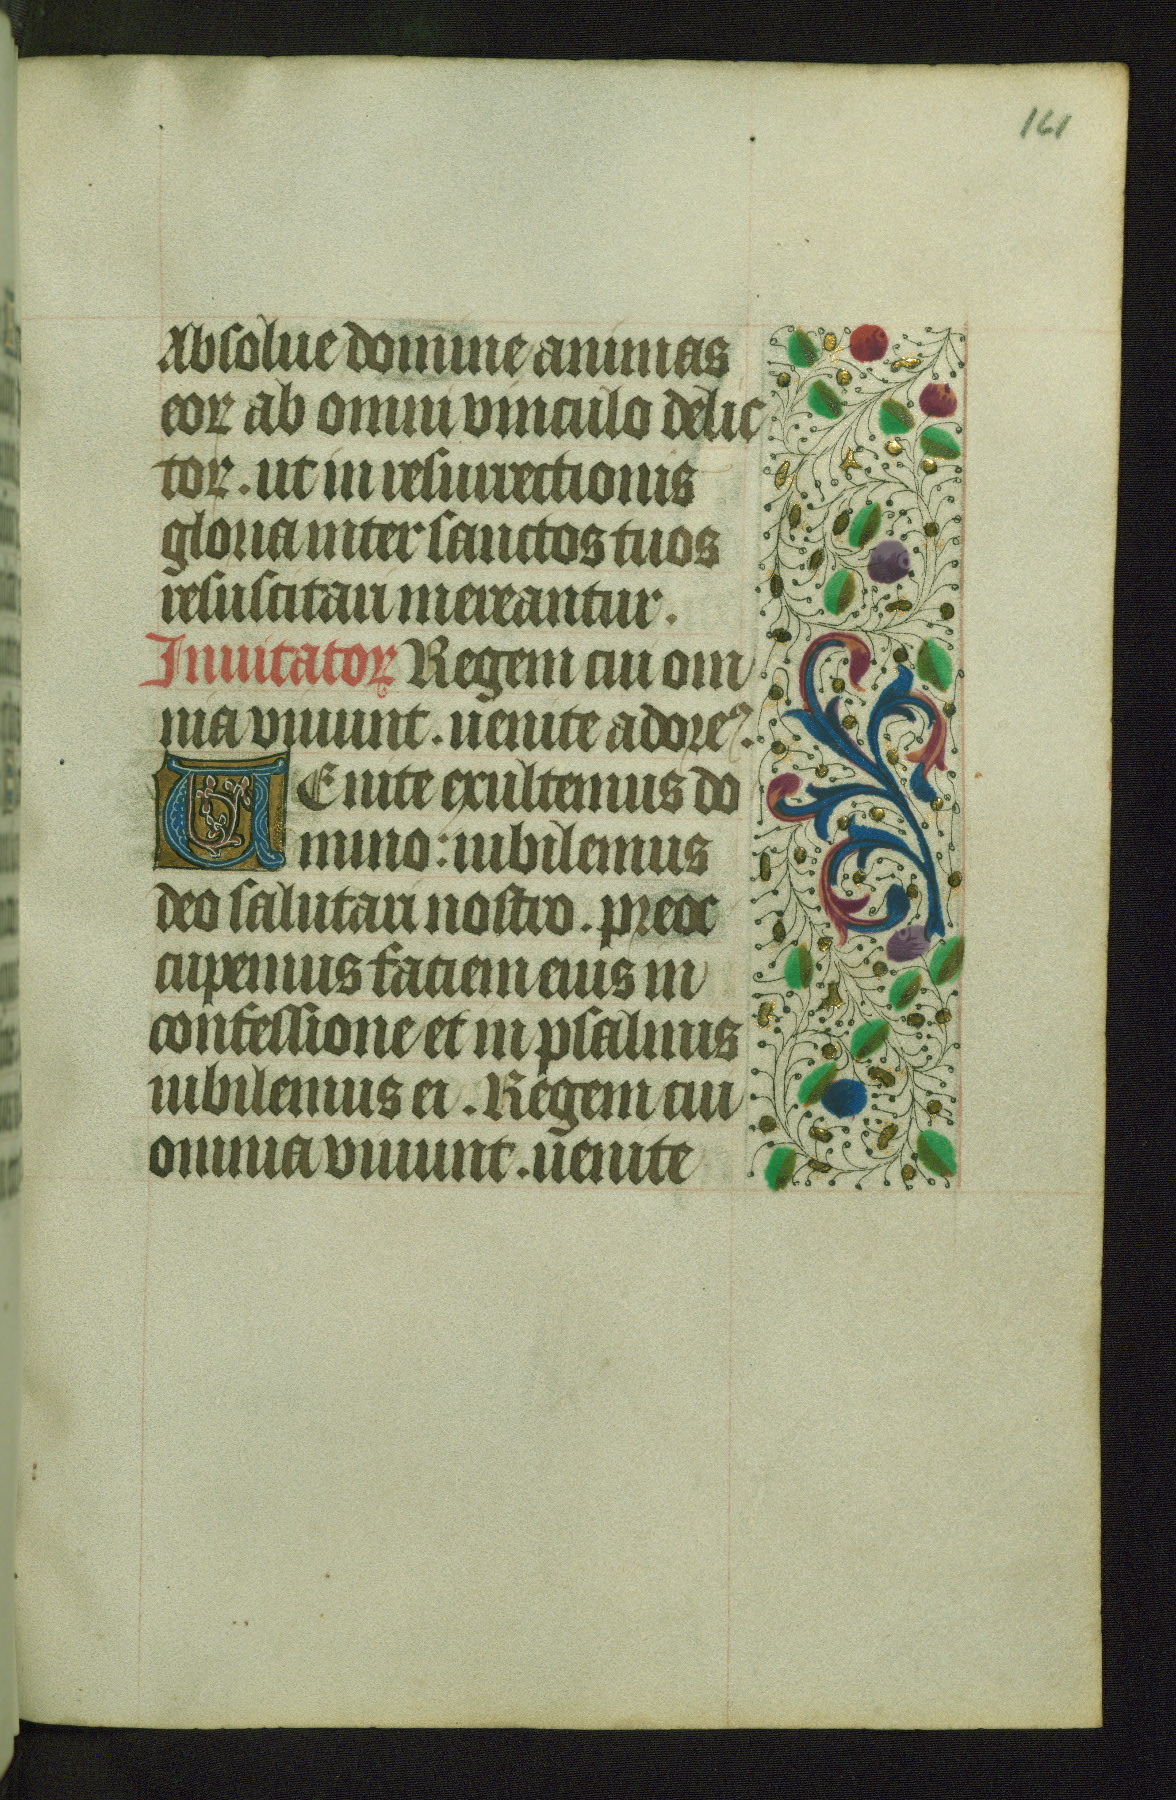 161
Absolue domine animas
eoꝝ ab omni vinculo delic
toꝝ. ut in resurrectionis
gloria inter sanctos tuos
resuscitari mereantur.
Inuitatoꝝ Regem cui om
nia viuunt. uenite adoreꝰ.
UEnite exultemus do
mino: iubilemus
deo salutari nostro. preoc
cupemus faciem eius in
confessione et in psalmis
iubilemus ei. Regem cui
omnia viuunt. uenite